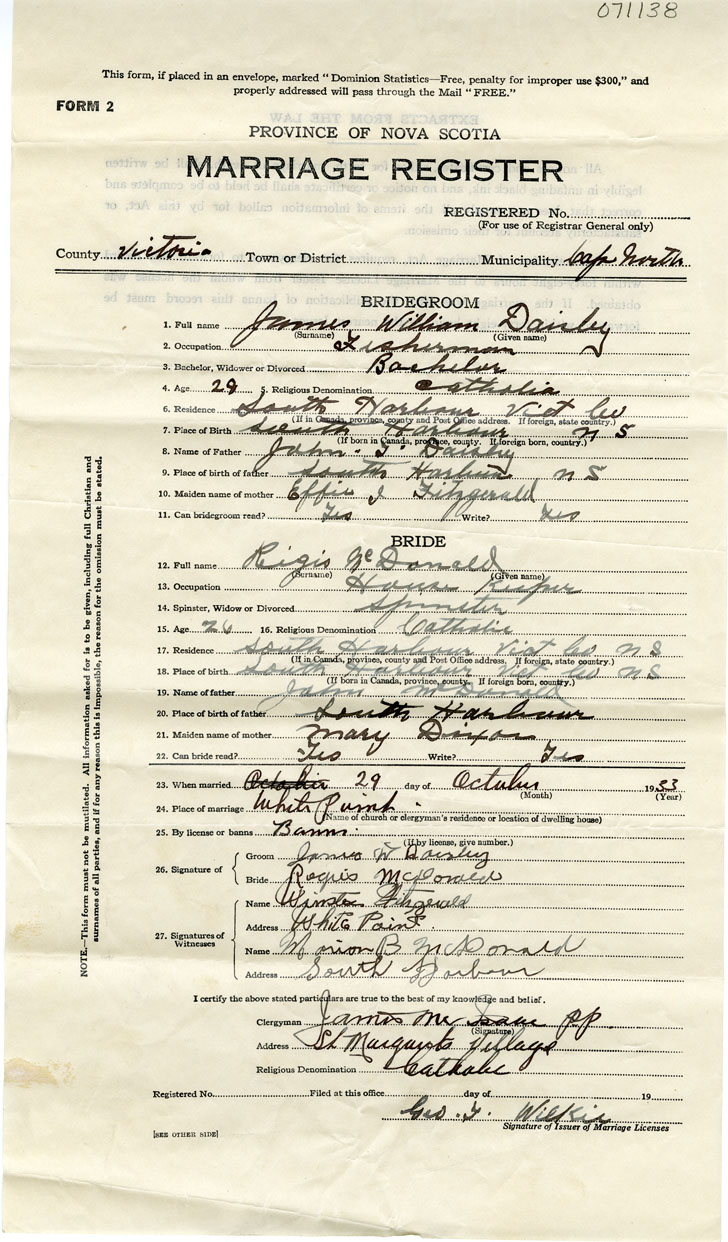 071138
This form, if placed in an envelope, marked "Dominion Statistics—Free, penalty for improper use $300," and
properly addressed will pass through the Mail "FREE."
FORM 2
PROVINCE OF NOVA SCOTIA
MARRIAGE REGISTER
REGISTERED No.
(For use of Registrar General only)
County Victoria Town or District Municipality Cape North
BRIDEGROOM
1. Full name James William Daisley
(Surname) (Given name)
2. Occupation Fisherman
3. Bachelor, Widower or Divorced Bachelor
4. Age 29 5. Religious Denomination Catholic
6. Residence South Harbour Vict Co
(If in Canada, province, county and Post Office address. If foreign, state country.)
7. Place of Birth South Harbour N S
(If born in Canada, province, county. If foreign born, country.)
8. Name of Father John. J. Daisley
9. Place of birth of father South Harbour N S
10. Maiden name of mother Effie J Fitzgerald
11. Can bridegroom read? Yes Write? Yes
BRIDE
12. Full name Rigis McDonald
(Surname) (Given name)
13. Occupation House Keeper
14. Spinster, Widow or Divorced Spinster
15. Age 26 16. Religious Denomination Catholic
17. Residence South Harbour Vict Co N S
(If in Canada, province, county and Post Office address. If foreign, state country.)
18. Place of birth South Harbour Vict Co N S
(If born in Canada, province, county. If foreign born, country.)
19. Name of father John McDonald
20. Place of birth of father South Harbour
21. Maiden name of mother Mary Dixon
22. Can bride read? Yes Write? Yes
23. When married October 29 day of October 1933
(Month) (Year)
24. Place of marriage White Point.
(Name of church or clergyman's residence or location of dwelling house)
25. By license or banns Banns.
(If by license, give number.)
26. Signature of
Groom James W Daisley
Bride Regis McDonald
27. Signatures of Witnesses
Name Winston Fitzgerald
Address White Point.
Name Marion B McDonald
Address South Harbour
I certify the above stated particulars are true to the best of my knowledge and belief.
Clergyman James Mc Isaac pp.
(Signature)
Address St Margarets Village
Religious Denomination Catholic
Registered No. Filed at this office day of 19
Geo. T. Wilkie
Signature of Issuer of Marriage Licenses
[SEE OTHER SIDE]
NOTE.—This form must not be mutilated. All information asked for is to be given, including full Christian and
surnames of all parties, and if for any reason this is impossible, the reason for the omission must be stated.